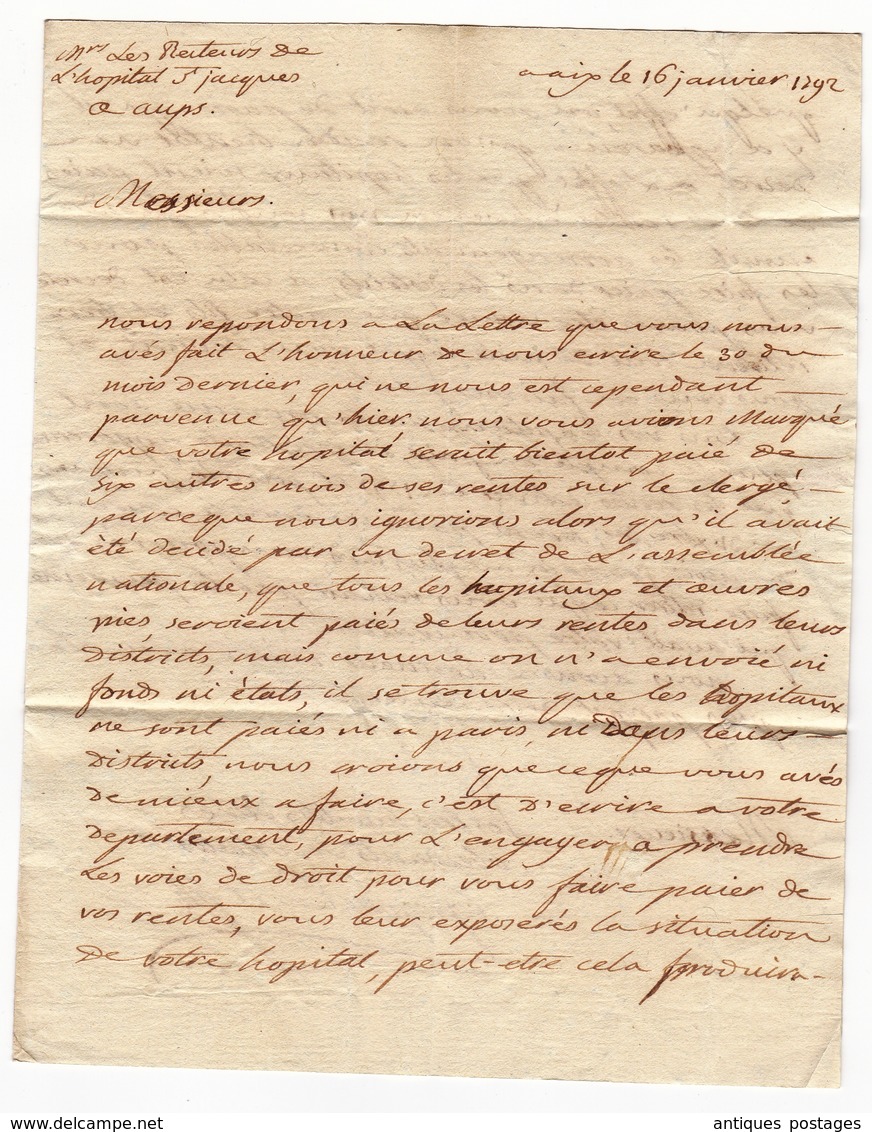 Mrs Les Recteurs de
L'hopital St jacques
a aups.
a aix le 16 janvier 1792
Messieurs.
nous repondons a La Lettre que vous nous
avés fait L'honneur de nous ecrire le 30 du
mois dernier, qui ne nous est cependant
parvenue qu'hier. nous vous avions Marqué
que votre hopital serait bientot paié de
six autres mois de ses rentes sur le clergé,
parceque nous ignorions alors qu'il avait
été decidé par un decret de L'assemblée
nationale, que tous les hopitaux et œuvres
pies seroient paiés de leurs rentes dans leurs
districts, mais comme on n'a envoié ni
fonds ni états, il se trouve que les hopitaux
ne sont paiés ni a paris, ni Dans leurs
districts, nous croions que ce que vous avés
de mieux a faire, c'est D'ecrire a votre
departement, pour L'engager a prendre
Les voies de droit pour vous faire paier de
vos rentes, vous leur exposerés la situation
de votre hopital, peut-etre cela produira
www.delcampe.net
antiques postages